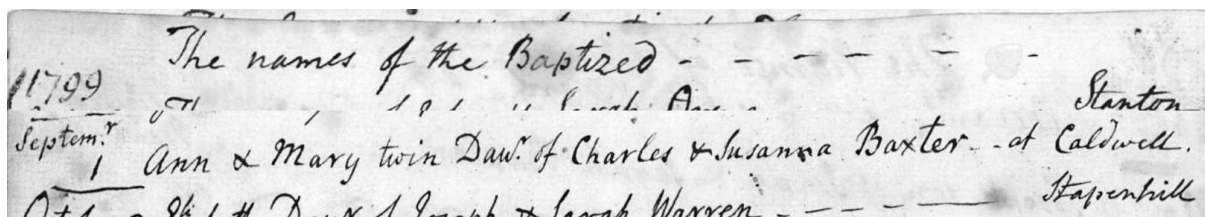 The names of the Baptized - - - - -
1799
Stanton
Septemr
1 Ann & Mary twin Daws. of Charles & Susanna Baxter - - at Caldwell.
Stapenhill
Joseph & Sarah Warren - - - -